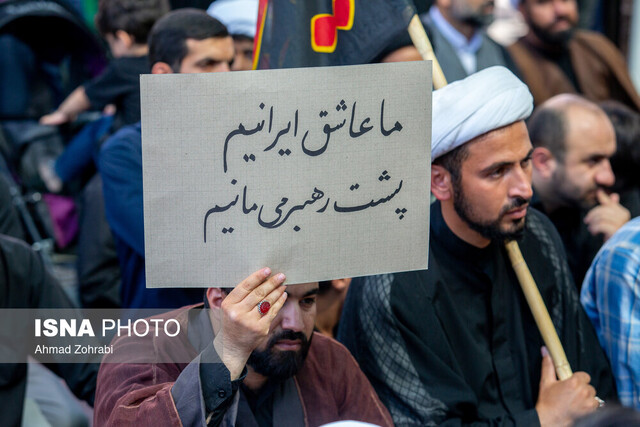 ما عاشق ایرانیم
پشت رهبر می مانیم
ISNA PHOTO
Ahmad Zohrabi